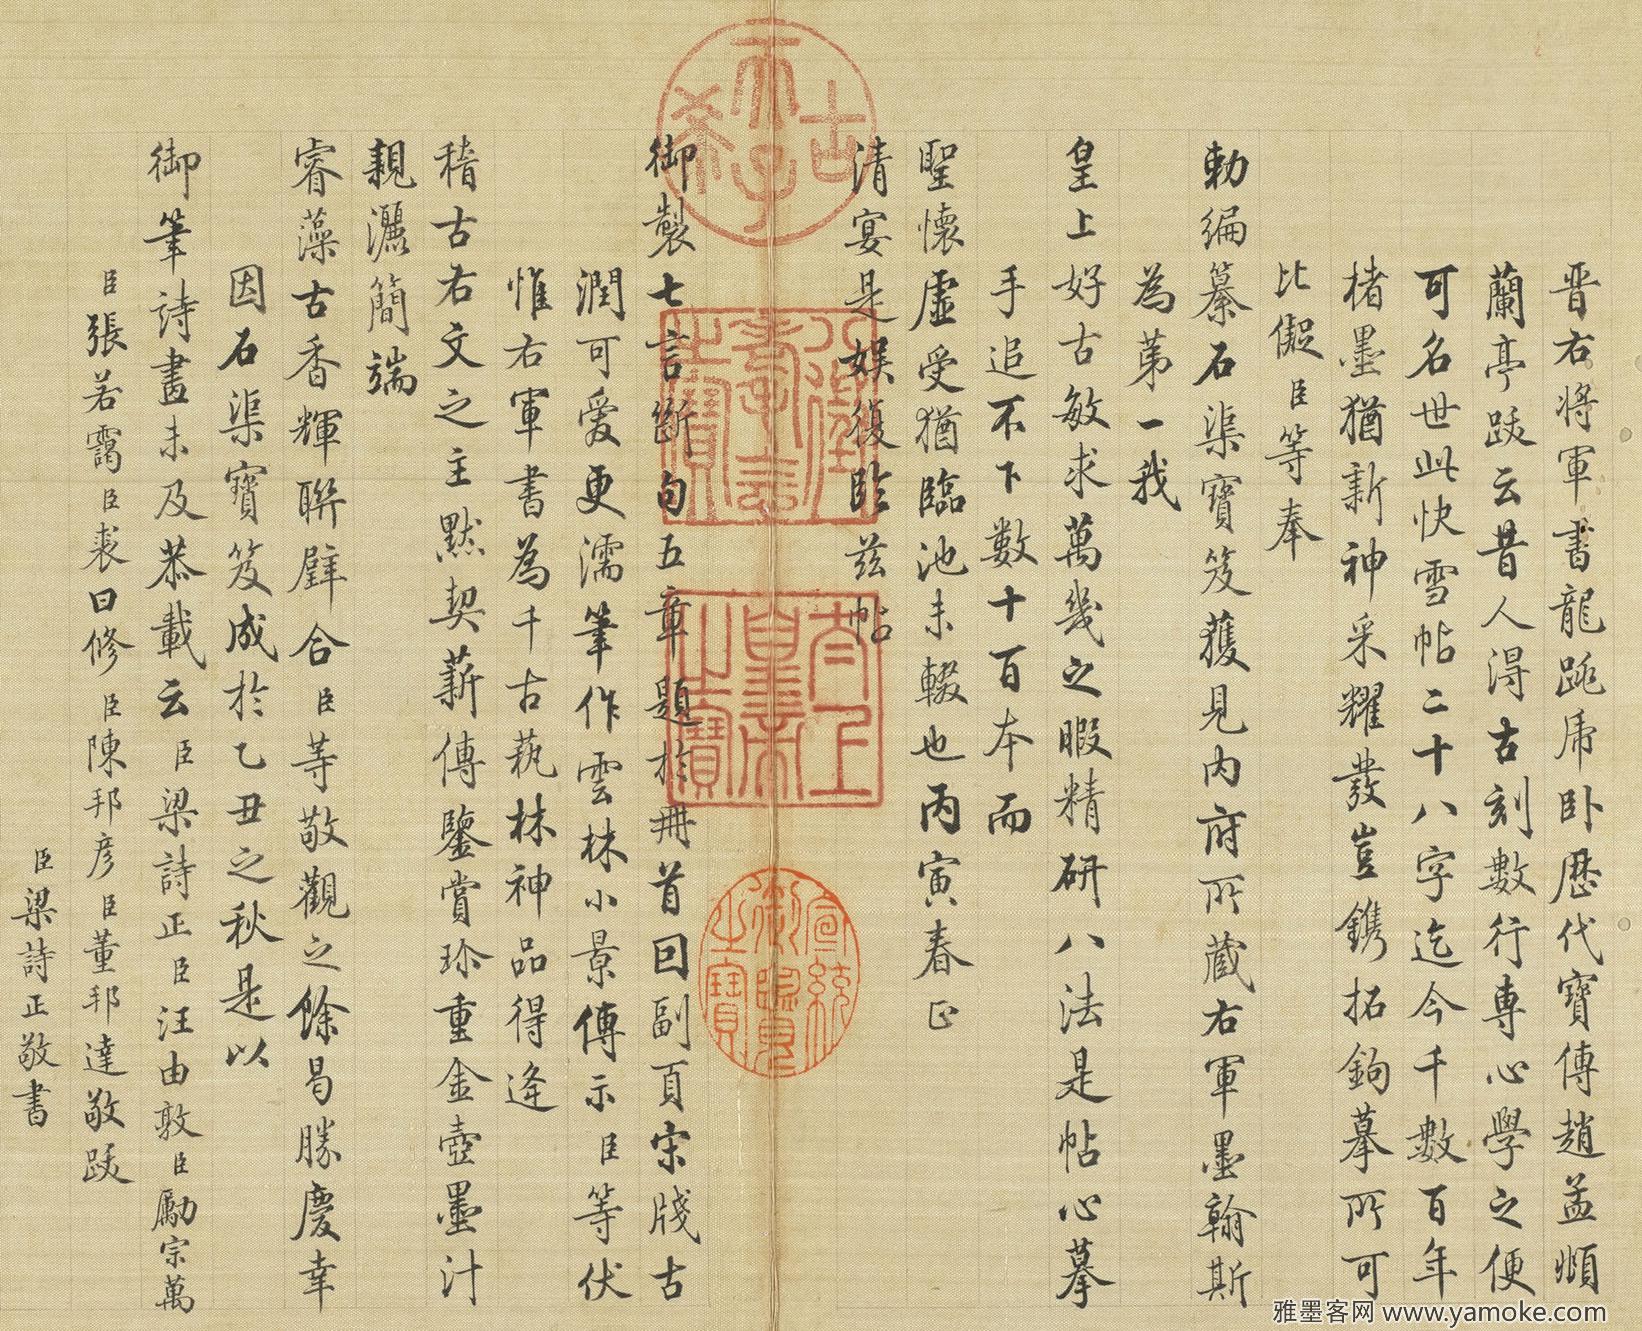 晋右將軍書龍跳乕卧歷代寶傳趙孟頫
蘭亭跋云昔人淂古刻數行專心學之便
可名世此快雪帖二十八字迄今千數百年
楮墨猶新神采耀發豈鐫拓鉤摹所可
比儗臣等奉
勅編纂石渠寶笈獲見内府所藏右軍墨翰斯
為第一我
皇上好古敏求萬幾之暇精研八法是帖心摹
手追不下數十百本而
聖懷虛受猶臨池未輟也丙寅春正
清宴是娱復臨兹帖
御製七言斷句五章題於冊首囙副頁宋牋古
潤可愛更濡筆作雲林小景傳示臣等伏
惟右軍書為千古蓺林神品得逢
稽古右文之主默契薪傳鑒賞珎重金壺墨汁
親灑簡端
睿藻古香輝聯璧合臣等敬觀之餘曷勝慶幸
因石渠寶笈成於乙丑之秋是以
御筆詩畫未及恭載云臣梁詩正臣汪由敦臣勵宗萬
臣張若靄臣裘曰修臣陳邦彦臣董邦達敬跋
臣梁詩正敬書
古希天子
八徵耄念之寶
太上皇帝之寶
宣統御覽之寶
雅墨客网 www.yamoke.com